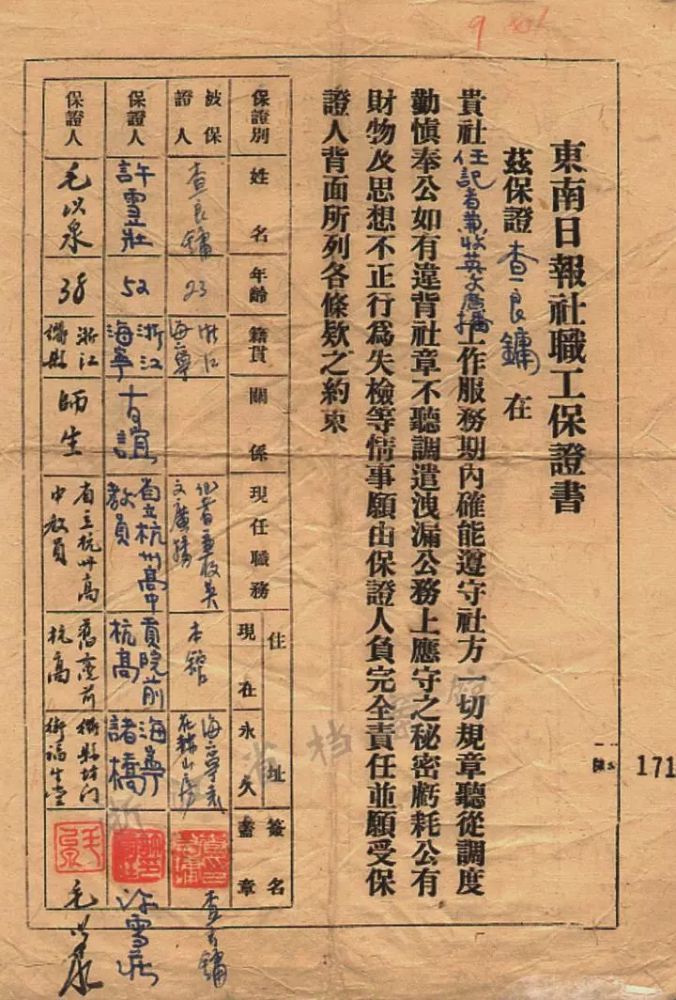 東南日報社職工保證書
茲保證查良鏞在
貴社任記者兼收英文廣播工作服務期內確能遵守社方一切規章聽從調度
勤慎奉公如有違背社章不聽調遣洩漏公務上應守之秘密虧耗公有
財物及思想不正行為失檢等情事願由保證人負完全責任並願受保
證人背面所列各條欵之約束
保證別 姓名 年齡 籍貫 關係 現任職務 住址 現在 永久 簽名蓋章
被保證人 查良鏞 23 浙江海寧 記者兼收英文廣播 本館 海寧袁花赫山房 查良鏞
保證人 許雪壯 52 浙江海寧 友誼 省立杭州高中教員 貢院前杭高 海寧諸橋
保證人 毛以泉 38 浙江 師生 省立杭州高中教員 舊貢院前杭高
171
9
浙江省档案館